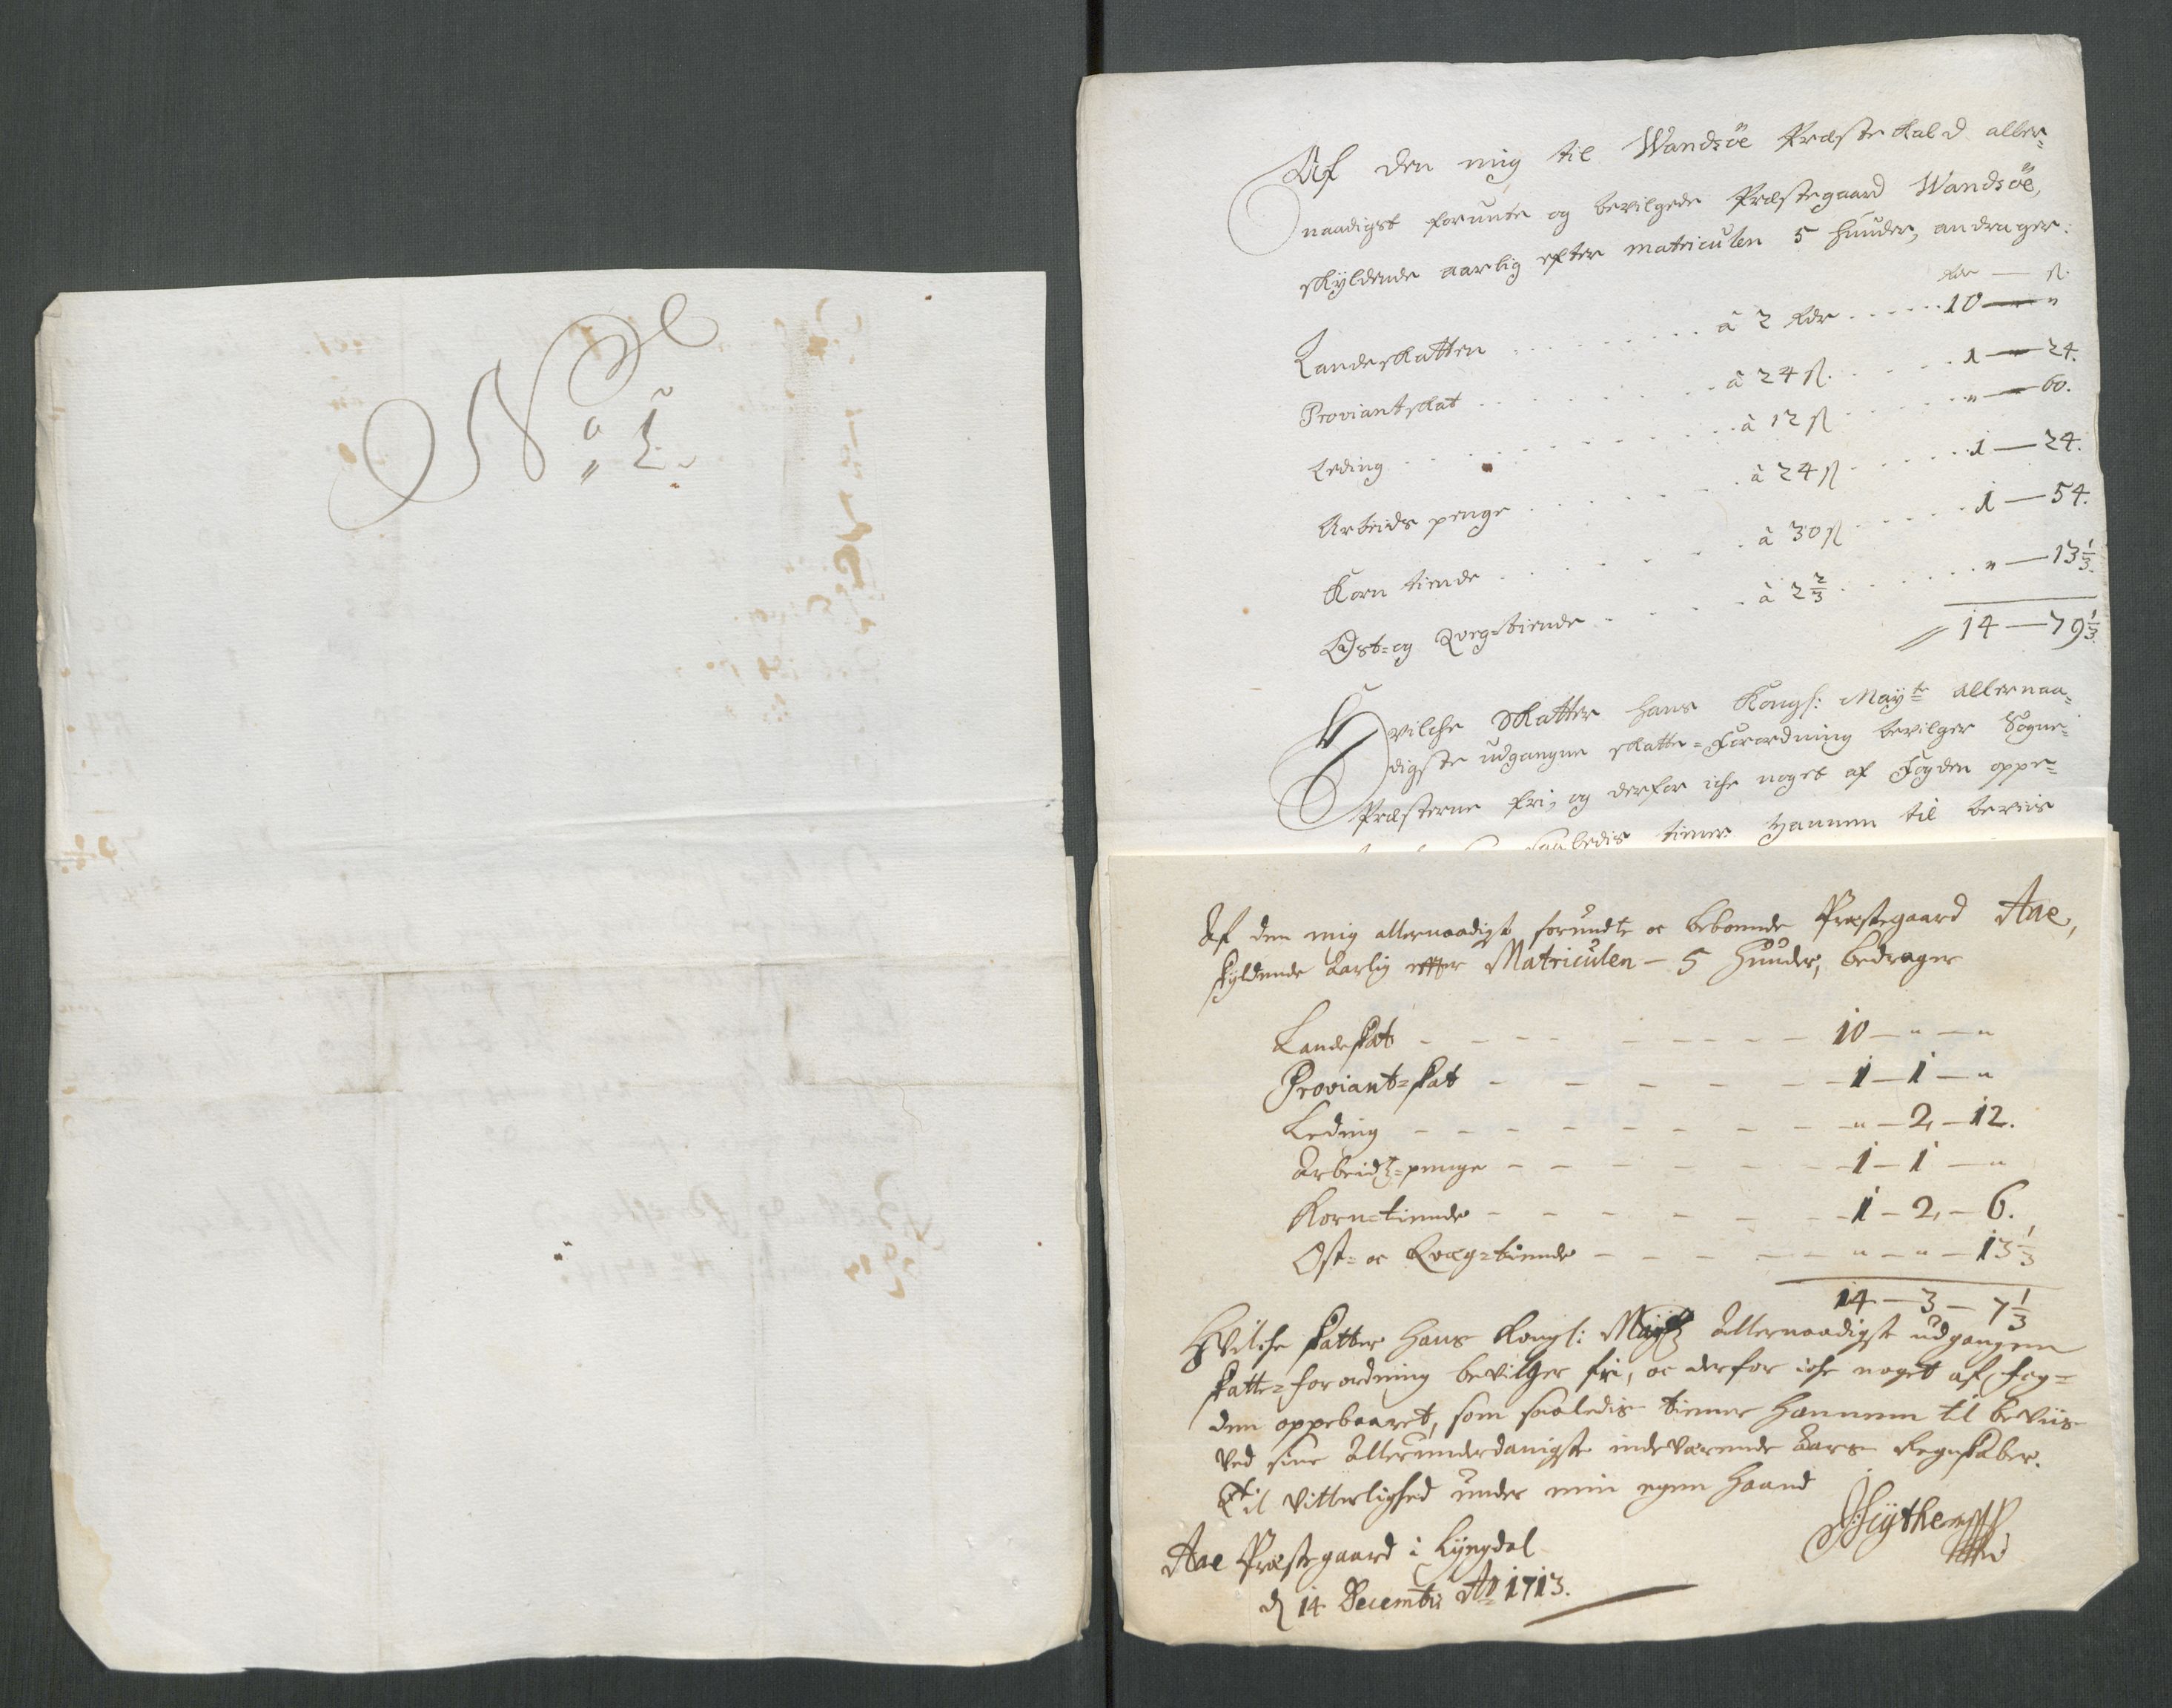 No 1.
Af den mig til Wandsöe Præste Kald aller-
naadigst forunte og bevilgede Præstegaard Wandsöe,
skÿldende aarlig efter matriculen 5 huuder, andrager:
Rdr — ß.
Landskatten . . . . . . . . à 2 Rdr . . . . . 10 — "
Proviantskat . . . . . . . . à 24 ß. . . . . . 1 — 24.
Leding . . . . . . . . à 12 ß . . . . . . " — 60.
Arbeids penge . . . . . . . à 24 ß . . . . . 1 — 24.
Korn tiende . . . . . . . à 30 ß . . . . . 1 — 54.
Ost- og Qveg-tiende . . . . . à 2 2/3 . . . . . . " — 13 1/3.
14 — 79 1/3.
Hvilche Skatter Hans Kongl: Maÿte allernaa-
digste udgangne skatte-Forordning bevilger Sogne-
Præsterne fri, og derfor iche noget af Fogden oppe-
saaledis tiener hannem til beviis
Af den mig allernaadigst forundte oc beboende Præstegaard Aae,
skyldende Aarlig effter Matriculen - 5 Huuder, bedrager
Landskat - - - - - - - - - - 10 — " — "
Proviant-skat - - - - - - - 1 — 1 — "
Leding - - - - - - - - - " — 2 — 12.
Arbeidtz-penge - - - - - - - 1 — 1 — "
Korn-tiende - - - - - - - 1 — 2 — 6.
Ost- oc Qvæg-tiende - - - - - - " — " — 13 1/3
14 — 3 — 7 1/3
Hvilche skatter Hans Kongl: Maÿtz Allernaadigste udgangen
skatte-forordning bevilger fri, oc derfor iche noget af fog-
den oppebaaret, som saaledis tiener hannem til beviis
ved sine Allerunderdanigste indeværende Aars Regnskaber.
Til vitterlighed under min egen haand
Aae Præstegaard i Lÿngdal
d 14 Decembr Ao 1713.